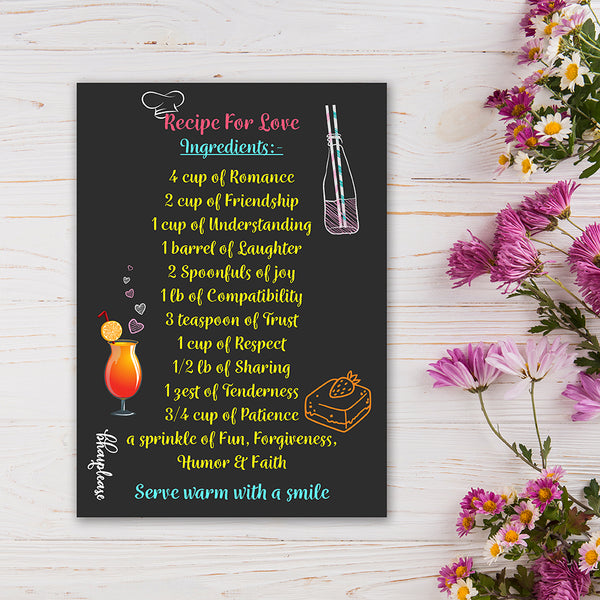 Recipe For Love
Ingredients:-
4 cup of Romance
2 cup of Friendship
1 cup of Understanding
1 barrel of Laughter
2 Spoonfuls of joy
1 lb of Compatibility
3 teaspoon of Trust
1 cup of Respect
1/2 lb of Sharing
1 zest of Tenderness
3/4 cup of Patience
a sprinkle of Fun, Forgiveness,
Humor & Faith
Serve warm with a smile
bhavplease